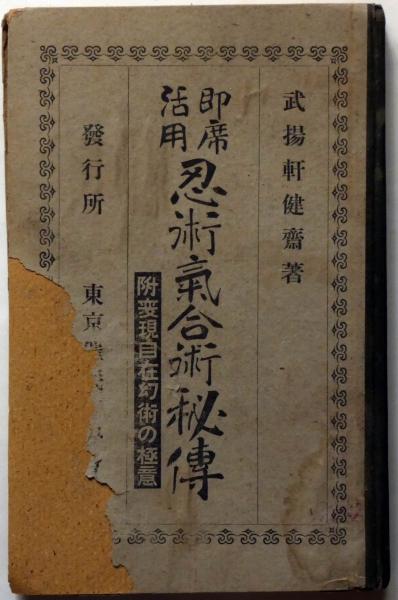 武揚軒健齋著
即席
活用
忍術氣合術秘傳
附変現自在幻術の極意
發行所 東京